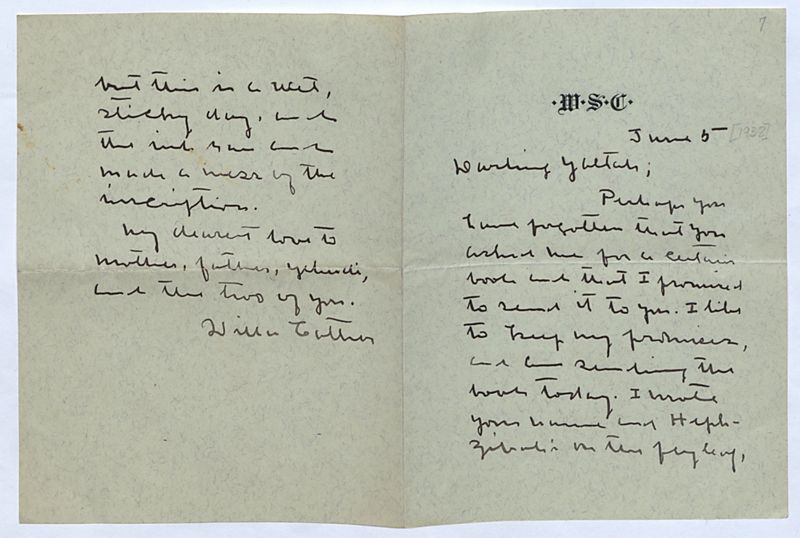 7
·W·S·C·
June 5 [1932]
Darling Yaltah;
Perhaps you
have forgotten that you
asked me for a certain
book and that I promised
to send it to you. I like
to keep my promises,
and am sending the
book today. I wrote
your name and Heph-
zibah's on the flyleaf,
but this is a wet,
sticky day, and
the ink ran and
made a mess of the
inscription.
My dearest love to
mother, father, Yehudi,
and the two of you.
Willa Cather